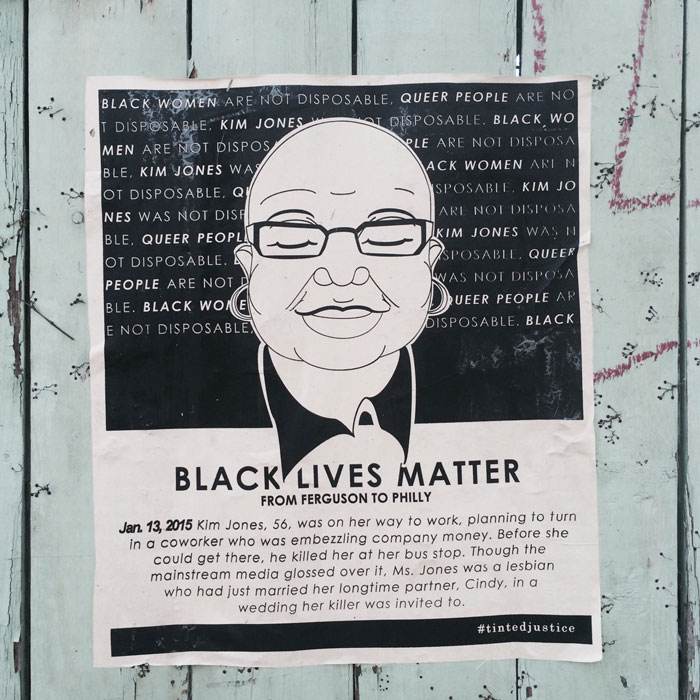 BLACK WOMEN ARE NOT DISPOSABLE, QUEER PEOPLE ARE NO
T DISPOSABLE, KIM JONES WAS NOT DISPOSABLE. BLACK WO
MEN ARE NOT DISPOS PLE ARE NOT DISPOSA
BLE, KIM JONES WAS ACK WOMEN ARE N
OT DISPOSABLE, Q SPOSABLE, KIM JO
NES WAS NOT DISP ARE NOT DISPOSA
BLE, QUEER PEOPL KIM JONES WAS N
OT DISPOSABLE, SPOSABLE, QUEER
PEOPLE ARE NOT WAS NOT DISPOSA
BLE. BLACK WOME QUEER PEOPLE AR
E NOT DISPOSABLE, DISPOSABLE, BLACK
BLACK LIVES MATTER
FROM FERGUSON TO PHILLY
Jan. 13, 2015 Kim Jones, 56, was on her way to work, planning to turn
in a coworker who was embezzling company money. Before she
could get there, he killed her at her bus stop. Though the
mainstream media glossed over it, Ms. Jones was a lesbian
who had just married her longtime partner, Cindy, in a
wedding her killer was invited to.
#tintedjustice